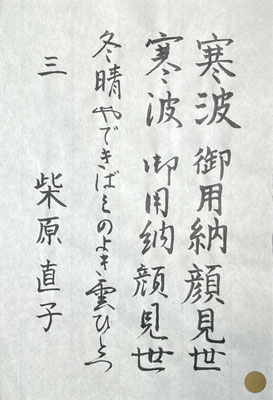 寒波 御用納 顔見世
寒波 御用納 顔見世
冬晴やできばえのよき雲ひとつ
三 柴原直子